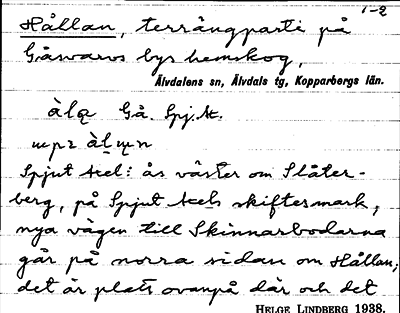 1-2
Hållan, terrängparti på
Gåsvarvs bys hemskog,
Älvdalens sn, Älvdals tg, Kopparbergs län.
àlą Gå. Spj. A.
upå àl n
Spjut Axel: ås väster om Släter-
berg, på Spjut Axels skiftesmark,
nya vägen till Skinnarbodarna
går på norra sidan om Hållan;
det är plats ovanpå där och det
HELGE LINDBERG 1938.